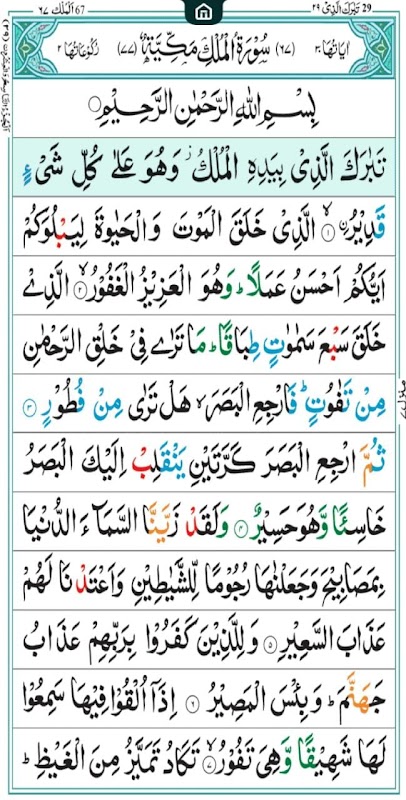 67 اَلْمُلْك ٦٧
29 تَبٰرَكَ الَّذِىْ ٢٩
اٰيَاتُهَا ٣٠ (٦٧) سُوْرَةُ الْمُلْكِ مَكِّيَّةٌ (٧٧) رُكُوْعَاتُهَا ٢
بِسْمِ اللّٰهِ الرَّحْمٰنِ الرَّحِيْمِ
تَبٰرَكَ الَّذِىْ بِيَدِهِ الْمُلْكُ ز وَهُوَ عَلٰى كُلِّ شَىْءٍ
قَدِيْرُ ۨ ۙ ١ الَّذِىْ خَلَقَ الْمَوْتَ وَالْحَيٰوةَ لِيَبْلُوَكُمْ
اَيُّكُمْ اَحْسَنُ عَمَلًا ؕ وَهُوَ الْعَزِيْزُ الْغَفُوْرُ ۙ ٢ الَّذِىْ
خَلَقَ سَبْعَ سَمٰوٰتٍ طِبَاقًا ؕ مَا تَرٰى فِىْ خَلْقِ الرَّحْمٰنِ
مِنْ تَفٰوُتٍ ؕ فَارْجِعِ الْبَصَرَ ۙ هَلْ تَرٰى مِنْ فُطُوْرٍ ٣
ثُمَّ ارْجِعِ الْبَصَرَ كَرَّتَيْنِ يَنْقَلِبْ اِلَيْكَ الْبَصَرُ
خَاسِئًا وَّهُوَ حَسِيْرٌ ٤ وَلَقَدْ زَيَّنَّا السَّمَآءَ الدُّنْيَا
بِمَصَابِيْحَ وَجَعَلْنٰهَا رُجُوْمًا لِّلشَّيٰطِيْنِ وَاَعْتَدْنَا لَهُمْ
عَذَابَ السَّعِيْرِ ٥ وَلِلَّذِيْنَ كَفَرُوْا بِرَبِّهِمْ عَذَابُ
جَهَنَّمَ ؕ وَبِئْسَ الْمَصِيْرُ ٦ اِذَاۤ اُلْقُوْا فِيْهَا سَمِعُوْا
لَهَا شَهِيْقًا وَّهِىَ تَفُوْرُ ۙ ٧ تَكَادُ تَمَيَّزُ مِنَ الْغَيْظِ ؕ